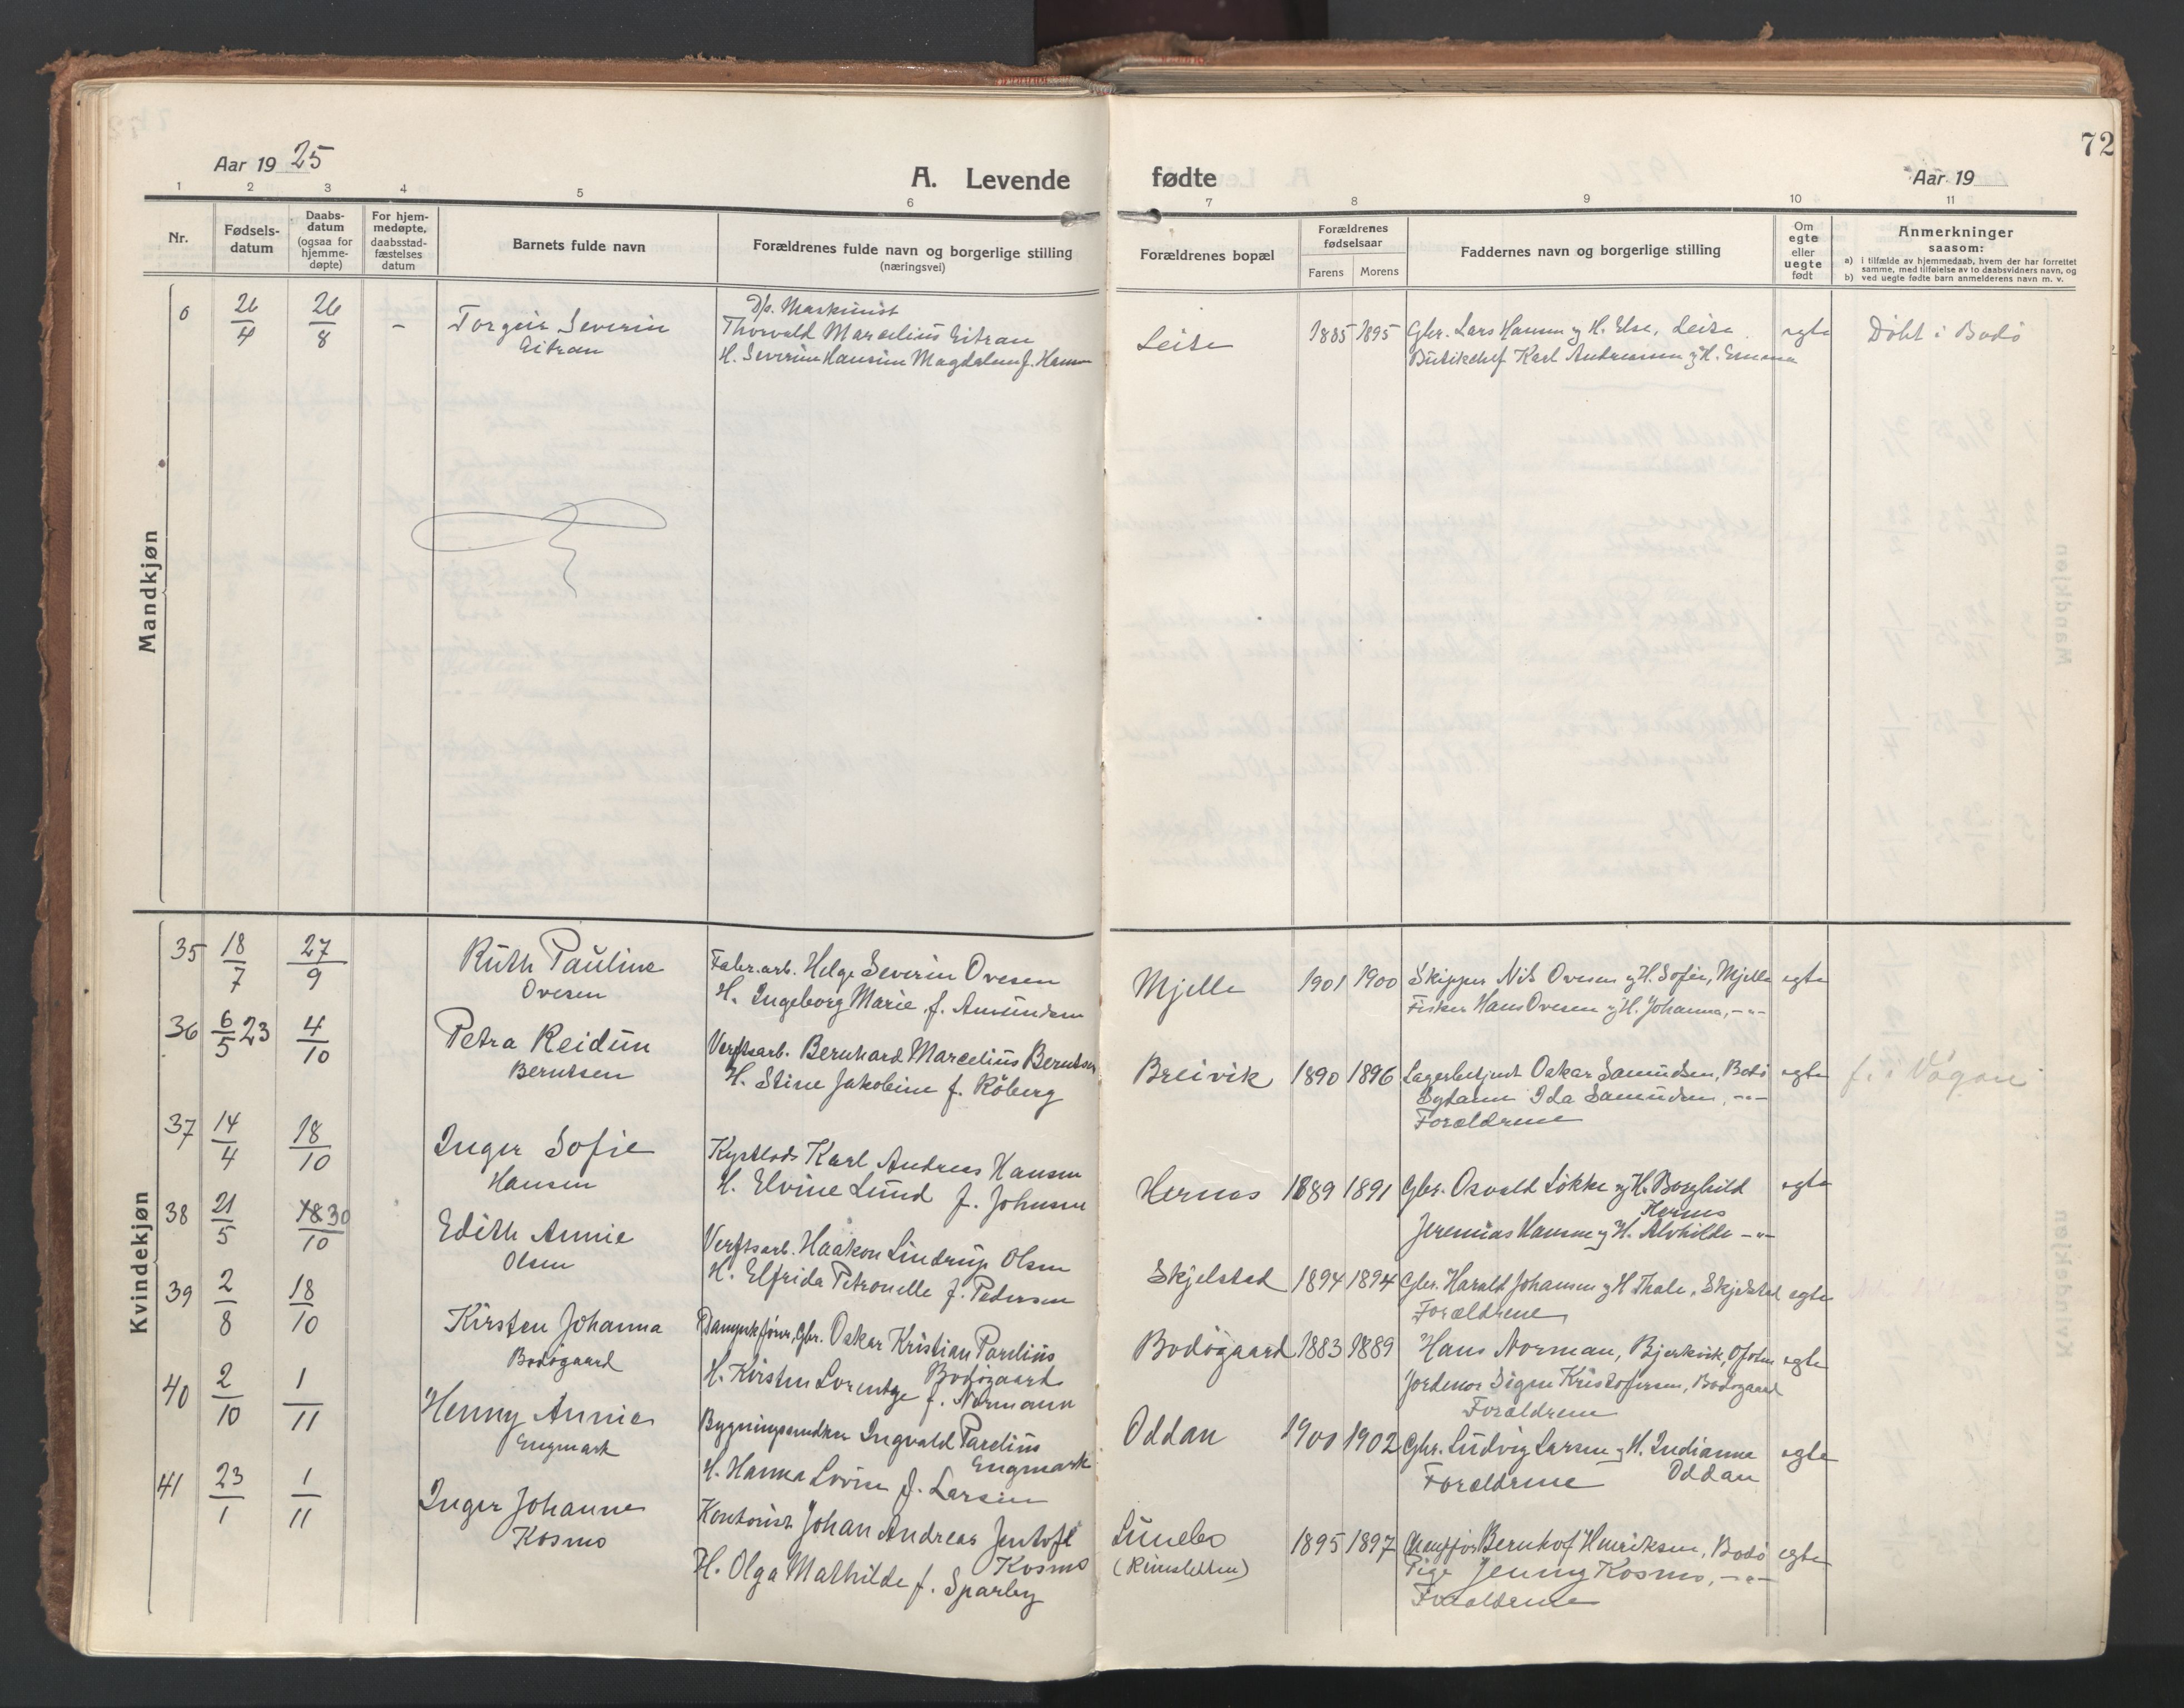 Aar 1925
A. Levende
fødte
Aar 19
72
1 2 3 4 5 6 7 8 9 10 11
Nr.
Fødsels-
datum
Daabs-
datum
(ogsaa for
hjemme-
døpte)
For hjem-
medøpte,
daabsstad-
fæstelses
datum
Barnets fulde navn
Forældrenes fulde navn og borgerlige stilling
(næringsvei)
Forældrenes bopæl
Forældrenes
fødselsaar
Farens Morens
Faddernes navn og borgerlige stilling
Om
egte
eller
uegte
født
Anmerkninger
saasom:
a) i tilfælde av hjemmedaab, hvem der har forrettet
samme, med tilføielse av to daabsvidners navn, og
b) ved uegte fødte barn anmelderens navn m. v.
Mandkjøn
6 26/4 26/8 - Torgeir Severin
Eitran
D/s. Maskinist
Thorvald Marselius Eitran
H. Severine Hansine Magdalene f. Hansen
Leite 1885 1895
Gbr. Lars Hansen og H. Else, Leite
Butikchef Karl Andreassen og H. Emma
egte
Döbt i Bodö
Kvindekjøn
35 18/7 27/9 Ruth Pauline
Ovesen
Fabr.arb. Helge Severin Ovesen
H. Ingeborg Marie f. Amundsen
Mjelle 1901 1900
Skipper Nils Ovesen og H. Sofie, Mjelle
Fisker Hans Ovesen og H. Johanna, -"-
egte
36 6/5 23 4/10 Petra Reidun
Berntsen
Verftsarb. Bernhard Marcelius Berntsen
H. Stine Jakobine f. Röberg
Breivik 1890 1896
Lagerbetjent Oskar Samuelsen, Bodö
Sydame Ida Samuelsen, -"-
Forældrene
egte
f. i Vågan
37 14/4 18/10 Inger Sofie
Hansen
Kystlods Karl Andreas Hansen
H. Elvine Lund f. Johnsen
Hernes 1889 1891
Gbr. Osvald Lökke og H. Borghild
Hernes
Jeremias Hansen og H. Alvhilde -"-
egte
38 21/5 18 30/10 Edith Annie
Olsen
Verftsarb. Haakon Lindrup Olsen
H. Elfrida Petronelle f. Pedersen
Skjelstad 1894 1894
Gbr. Harald Johansen og H. Thale, Skjelstad
Forældrene
egte
39 2/8 18/10 Kirsten Johanna
Bodøgaard
Dampskförer, Gbr. Oskar Kristian Parelius
Bodøgaard
H. Kirsten Lorentze f. Normann
Bodøgaard 1883 1889
Hans Norman, Bjerkvik, Ofoten
Jordmor Signe Kristofersen, Bodøgaard
Forældrene
egte
40 2/10 1/11 Henny Annie
Engmark
Bygningssnedker Ingvald Parelius
Engmark
H. Hanna Lovise f. Larsen
Oddan 1900 1902
Gbr. Ludvig Larsen og H. Indianna
Oddan
Forældrene
egte
41 23/1 1/11 Inger Johanne
Kosmo
Kontorist Johan Andreas Jentoft
Kosmo
H. Olga Mathilde f. Sparby
Lunebo
(Rönsletten)
1895 1897
Bernhof Henriksen, Bodö
Pige Jenny Kosmo, -"-
Forældrene
egte